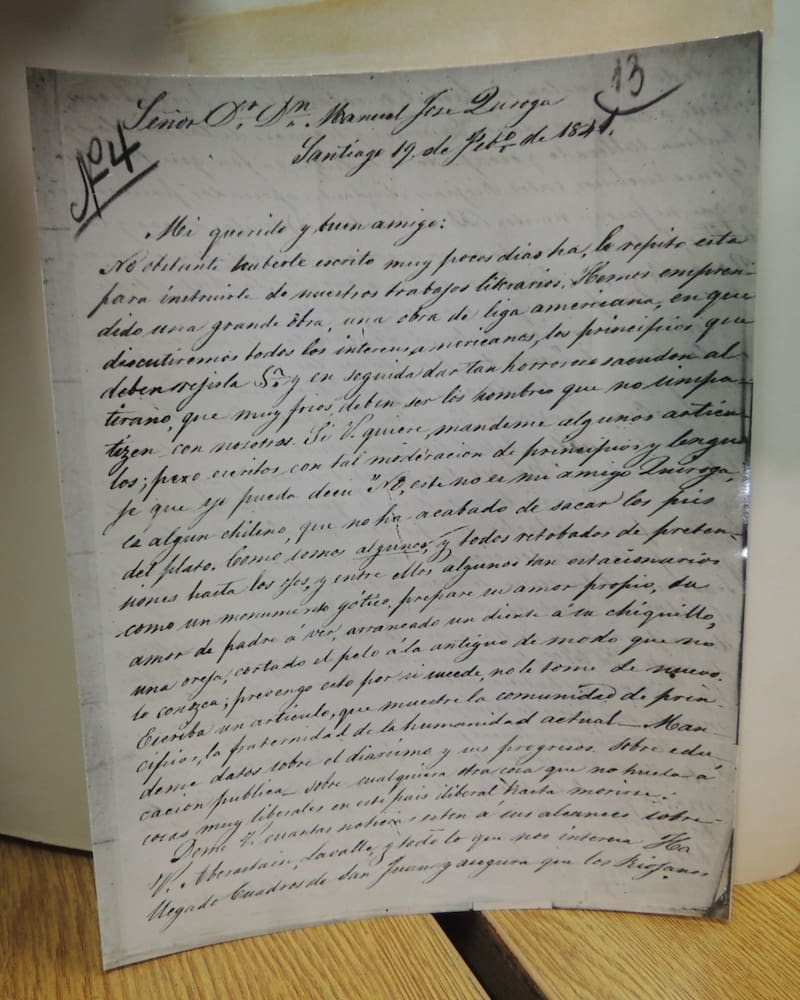 13
Señor Dr. Dn. Manuel José Quiroga
Nº 4
Santiago 19, de Febo. de 1841.
Mi querido y buen amigo:
No obstante haberle escrito muy pocos dias ha, le repito esta
para instruirle de nuestros trabajos literarios. Hemos empren-
dido una grande obra, una obra de liga americana, en que
discutiremos todos los intereses americanos, los principios que
deben rejirla y en seguida dar tan horrorosa sacudon al
tirano, que muy frios deben ser los hombres que no simpa-
tizen con nosotros. Si V. quiere, mandeme algunos articu-
los; pero escritos con tal moderacion de principios y lengua-
je que yo pueda decir "No, este no es mi amigo Quiroga,
es algun chileno, que no ha acabado de sacar los pies
del plato. Como somos algunos, y todos retobados de preten-
siones hasta los ojos, y entre ellos algunos tan estacionarios
como un monumento gótico, prepare su amor propio, su
amor de padre á ver, arrancado un diente á su chiquillo,
una oreja, cortado el pelo á la antigua de modo que no
lo conozca; prevengo esto por si sucede, no le tome de nuevo.
Escriba un artículo, que muestre la comunidad de prin-
cipios, la fraternidad de la humanidad actual — Man-
deme datos sobre el diarismo y sus progresos. Sobre edu-
cacion publica — sobre cualquiera otra cosa que no huela á
cosas muy liberales en este pais iliberal hasta morirse.
Deme V. cuantas noticias esten á sus alcances sobre
V. Aberastain, Lavalle, y todo lo que nos interesa Ha
llegado Cuadros de San Juan y asegura que los Riojanos